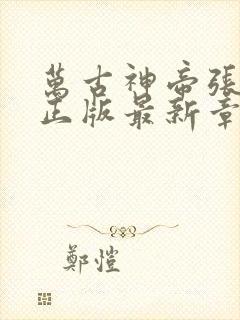 萬古神帝張
正版最新章
鄭愷